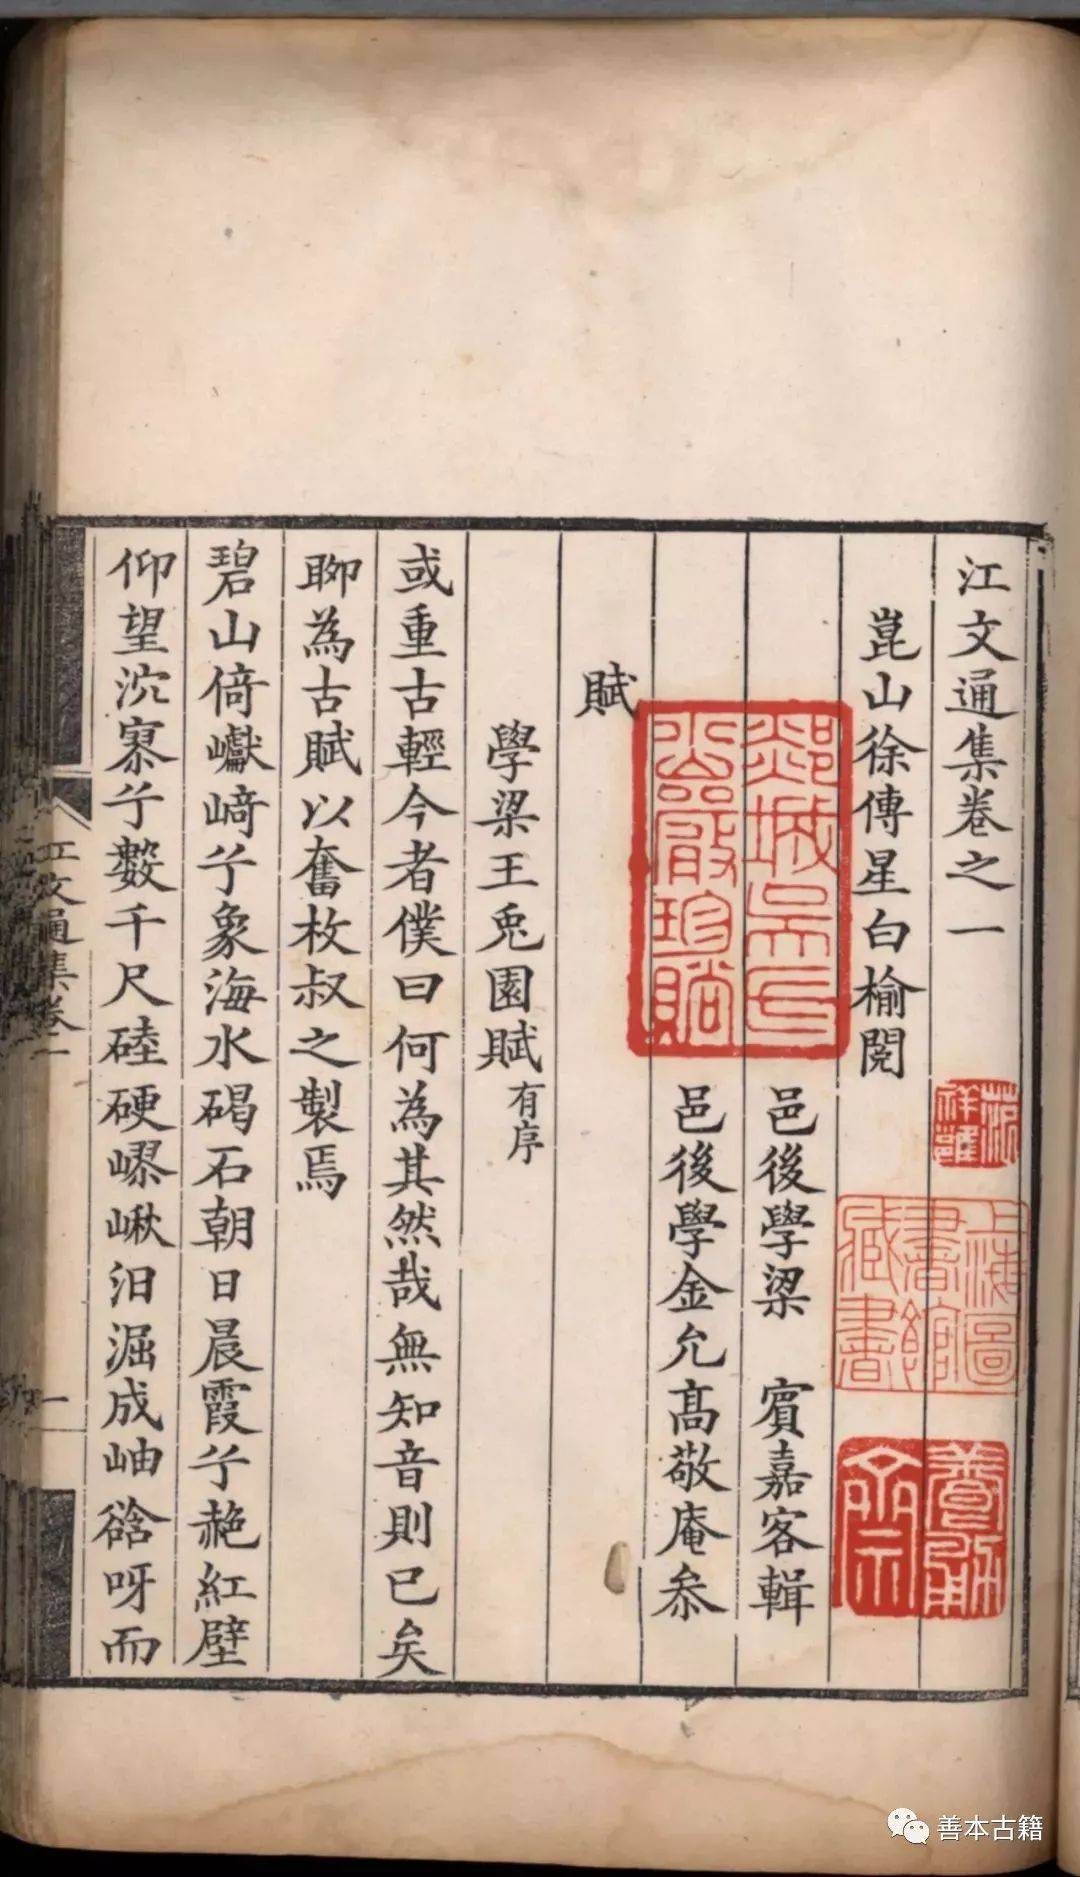 江文通集卷之一
崑山徐傳星白榆閱
邑後學梁　賓嘉客輯
邑後學金允高敬庵叅
賦
學梁王兎園賦有序
或重古輕今者僕曰何為其然哉無知音則已矣
聊為古賦以奮枚叔之製焉
碧山倚巘崎兮象海水碣石朝日晨霞兮赩紅壁
仰望泬寥兮數千尺硉硬嵺崷汨淈成岫谽呀而
江文通集卷一
一
上海圖書館藏書
善本古籍